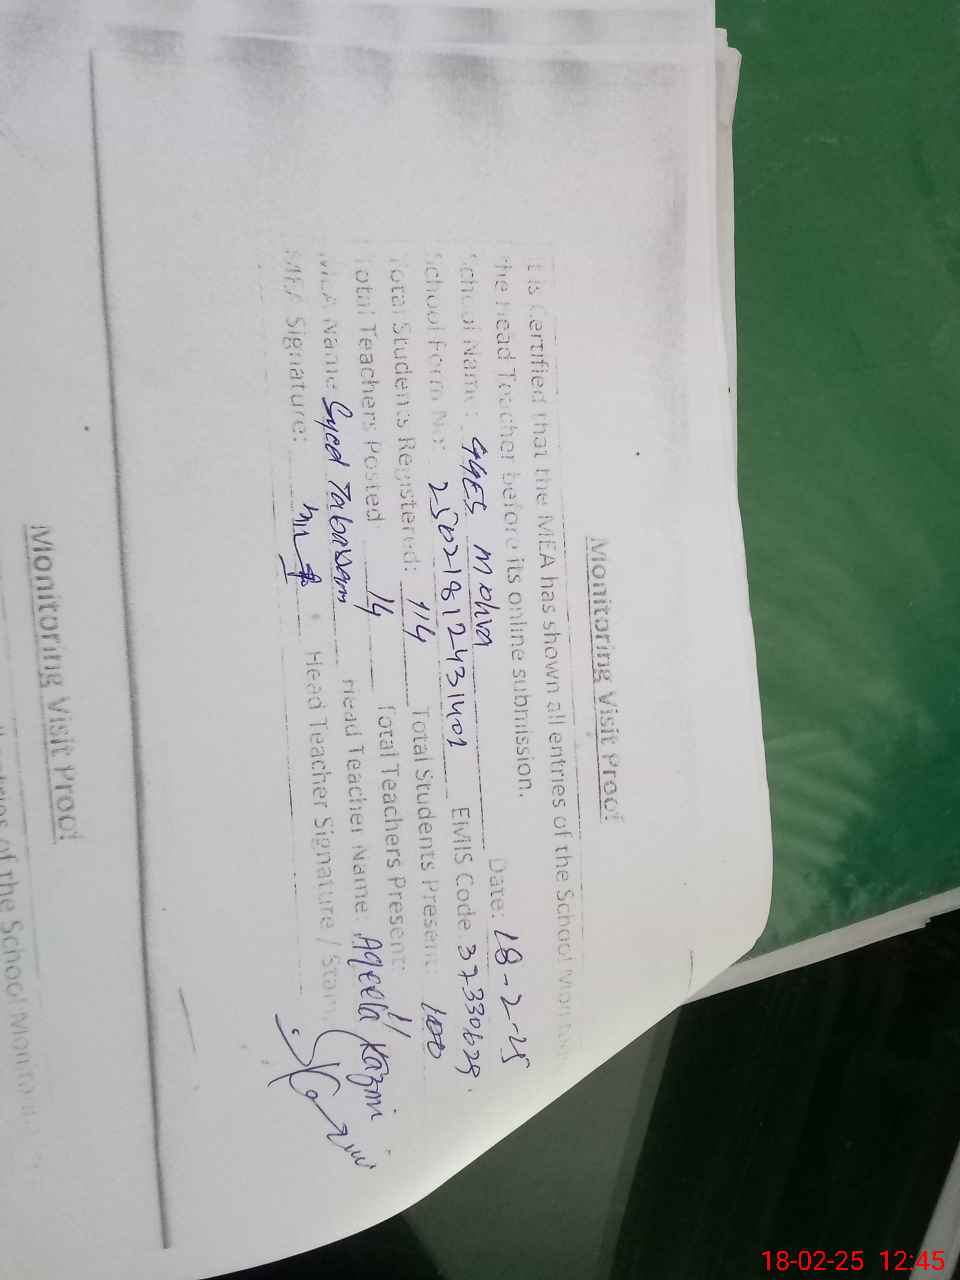 Monitoring Visit Proof
It is Certified that the MEA has shown all entries of the School
the Head Teacher before its online submission.
School Name: GGES Mohra Date: 18-2-25
School Form No: 25021812431402 EMIS Code 37330629
Total Students Registered: 114 Total Students Present: 100
Total Teachers Posted 14 Total Teachers Present: 11
MEA Name Syed Tabassam Head Teacher Name: Aqeela Kazmi
MEA Signature: Head Teacher Signature / Stamp
Monitoring Visit Proof
of the School
18-02-25 12:45